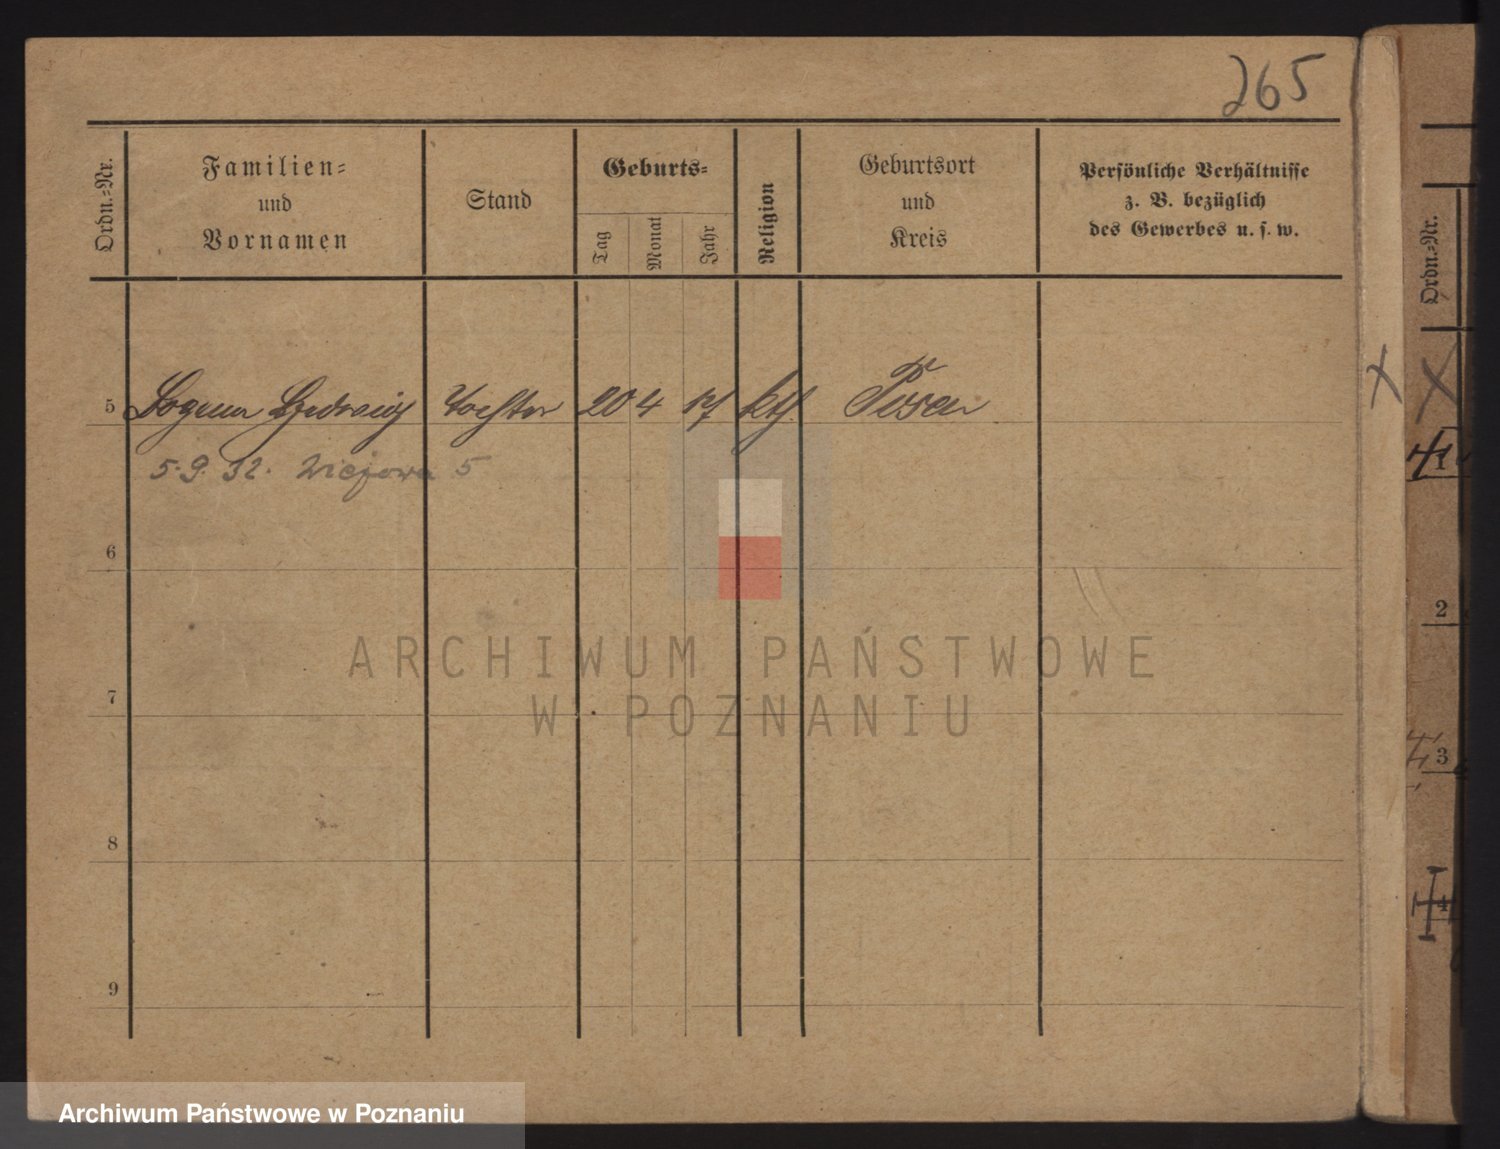 265
Ordn.-Nr.
Familien-
und
Vornamen
Stand
Geburts-
Tag
Monat
Jahr
Religion
Geburtsort
und
Kreis
Persönliche Verhältnisse
z. B. bezüglich
des Gewerbes u. s. w.
Ordn.-Nr.
5 Hedwig Tochter 20 4 17 kth. Posen
5.9.32. 5
6
7
8
9
2
3
4
ARCHIWUM PAŃSTWOWE
W POZNANIU
Archiwum Państwowe w Poznaniu